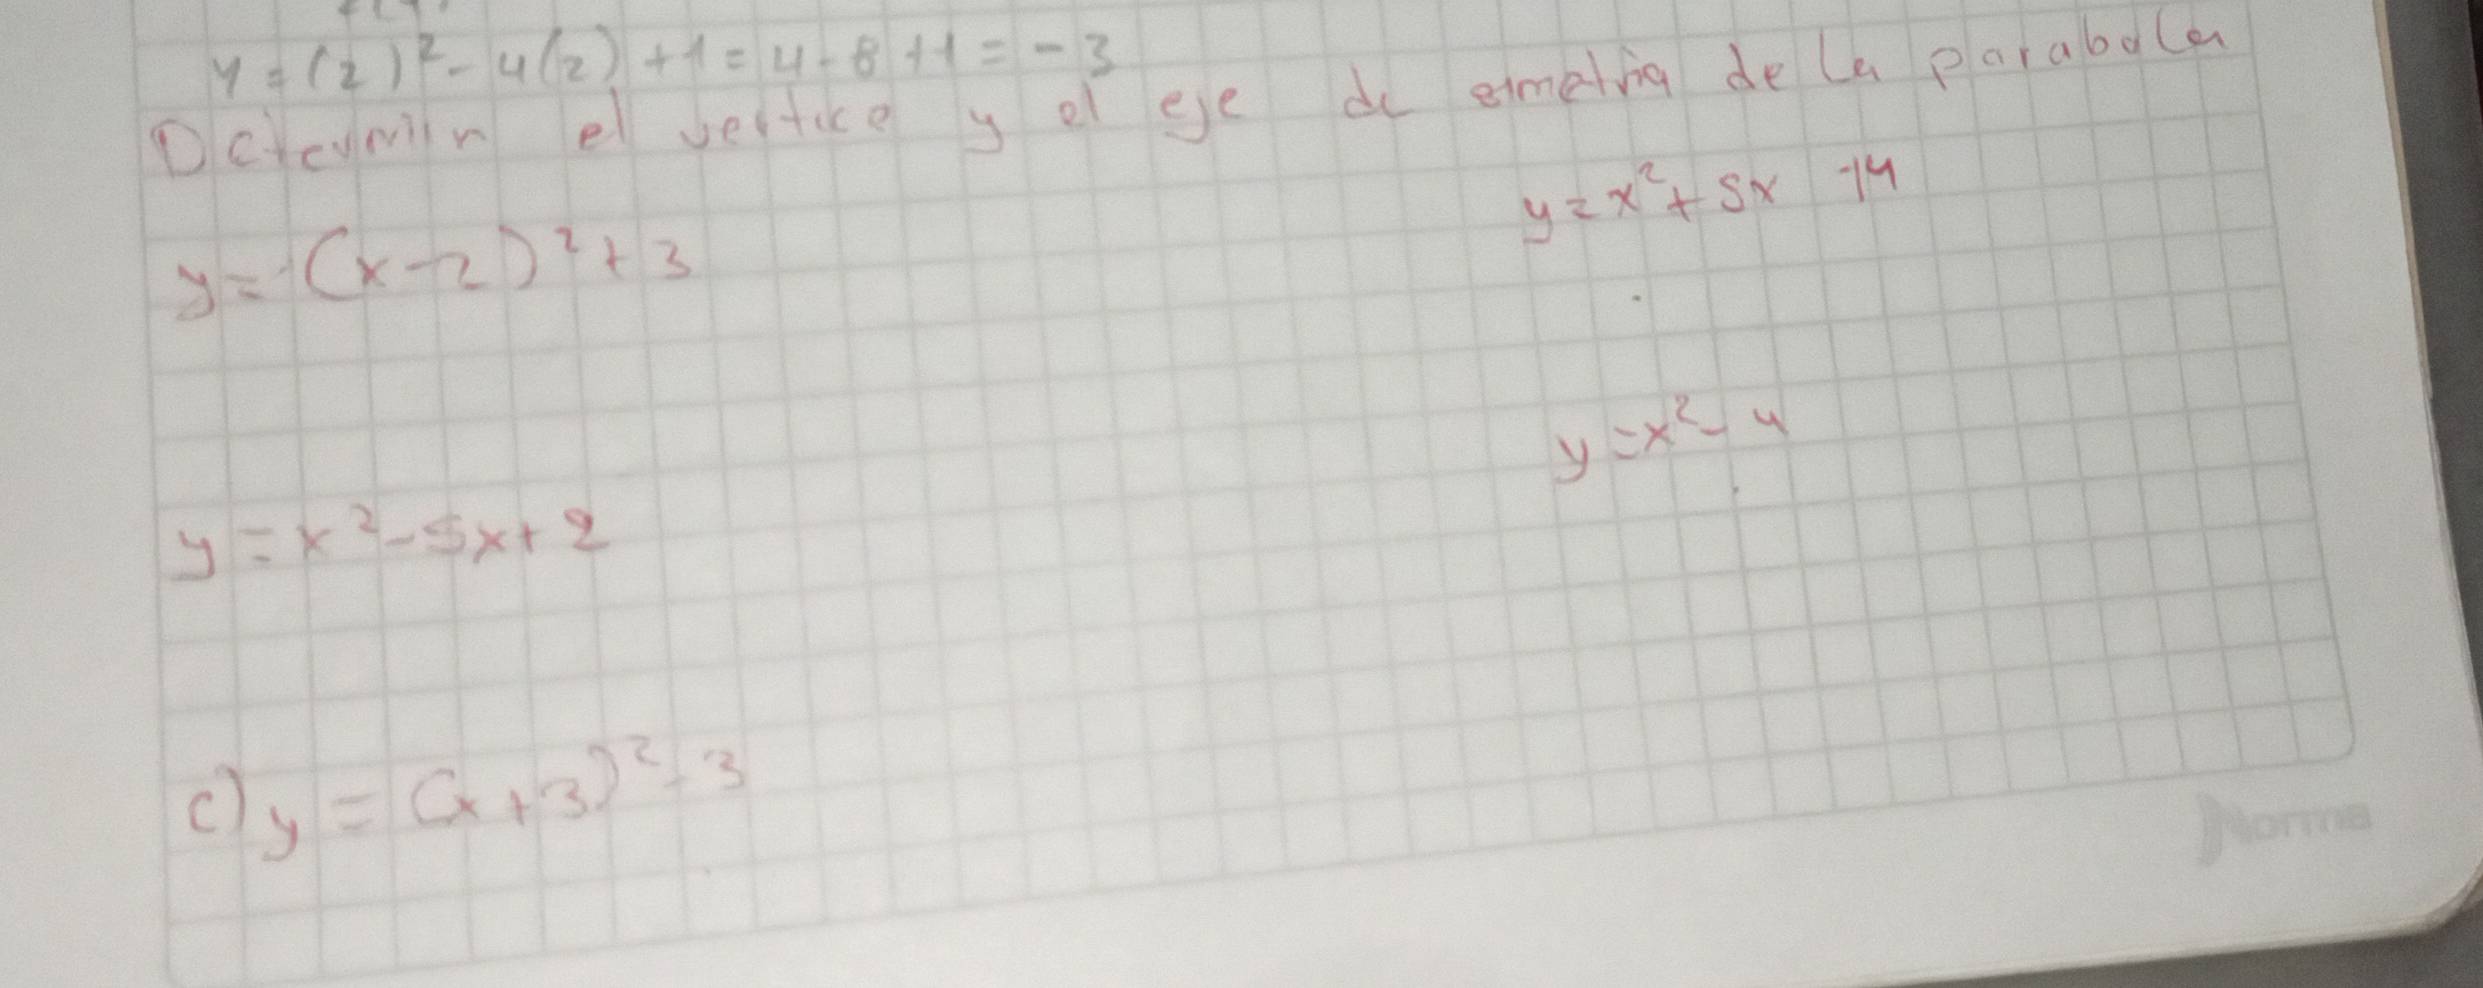 y = (2)² - 4(2) + 1 = 4 - 8 + 1 = - 3
Determin el vertice y el eje de simetria de la parabola
y = x² + 5x - 14
y = (x - 2)² + 3
y = x² - 4
y = x² - 5x + 2
c) y = (x + 3)² - 3
Norma